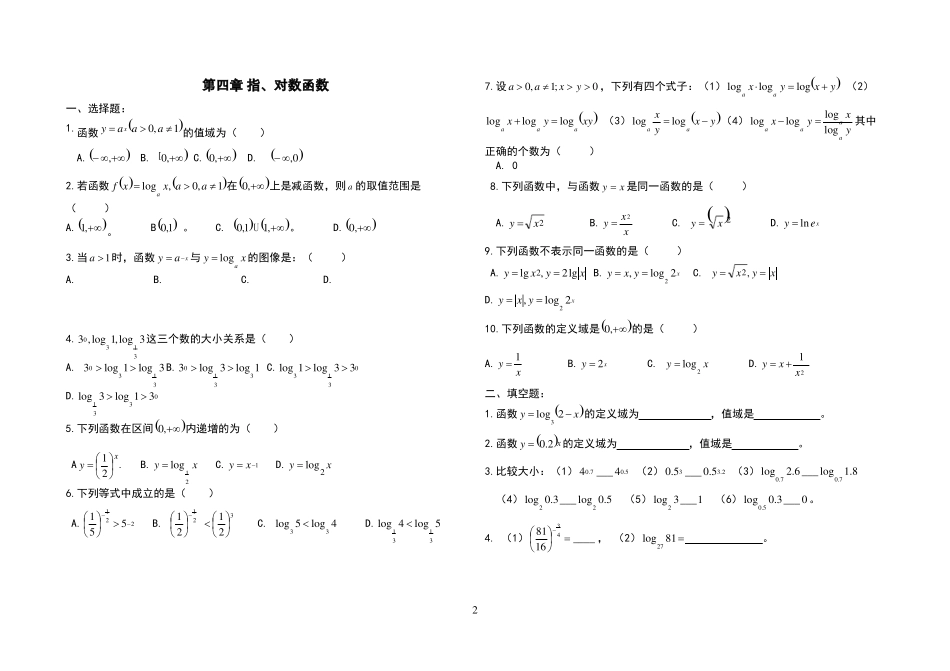 第四章 指、对数函数
一、选择题：
1. 函数 y = a^x (a > 0, a ≠ 1) 的值域为（　　）
A. (−∞,+∞)  B. [0,+∞)  C. (0,+∞)  D. (−∞,0)
2. 若函数 f(x) = log_a x, (a > 0, a ≠ 1) 在 (0,+∞) 上是减函数，则 a 的取值范围是
（　　）
A. (1,+∞)。 B (0,1) 。 C. (0,1)∪(1,+∞)。 D. (0,+∞)
3. 当 a > 1 时，函数 y = a^{−x} 与 y = log_a x 的图像是：（　　）
A. B. C. D.
4. 3^0, log_3 1, log_{1/3} 3 这三个数的大小关系是（　　）
A. 3^0 > log_3 1 > log_{1/3} 3 B. 3^0 > log_{1/3} 3 > log_3 1 C. log_3 1 > log_{1/3} 3 > 3^0
D. log_{1/3} 3 > log_3 1 > 3^0
5. 下列函数在区间 (0,+∞) 内递增的为（　　）
A y = (1/2)^x. B. y = log_{1/2} x C. y = x^{−1} D. y = log_2 x
6. 下列等式中成立的是（　　）
A. (1/5)^{−1/2} > 5^{−2} B. (1/2)^{−1/2} < (1/2)^3 C. log_3 5 < log_3 4 D. log_{1/3} 4 < log_{1/3} 5
7. 设 a > 0, a ≠ 1; x > y > 0，下列有四个式子：（1） log_a x · log_a y = log(x + y) （2）
log_a x + log_a y = log_a (xy) （3） log_a x/y = log_a (x − y) （4） log_a x − log_a y = log_a x / log_a y 其中
正确的个数为（　　）
A. 0
8. 下列函数中，与函数 y = x 是同一函数的是（　　）
A. y = √x^2 B. y = x^2/x C. y = (√x)^2 D. y = ln e^x
9. 下列函数不表示同一函数的是（　　）
A. y = lg x^2, y = 2lg|x| B. y = x, y = log_2 2^x C. y = √x^2, y = |x|
D. y = |x|, y = log_2 2^x
10. 下列函数的定义域是 (0,+∞) 的是（　　）
A. y = 1/x B. y = 2^x C. y = log_2 x D. y = x + 1/x^2
二、填空题：
1. 函数 y = log_3 (2 − x) 的定义域为____________，值域是___________。
2. 函数 y = (0.2)^x 的定义域为____________，值域是___________。
3. 比较大小：（1） 4^{0.7} ___ 4^{0.5} （2） 0.5^3 ___ 0.5^{3.2} （3） log_{0.7} 2.6 ___ log_{0.7} 1.8
（4） log_2 0.3 ___ log_2 0.5 （5） log_2 3 ___ 1 （6） log_{0.5} 0.3 ___ 0 。
4. （1） (81/16)^{−3/4} = ____ ， （2） log_{27} 81 = _____________。
2